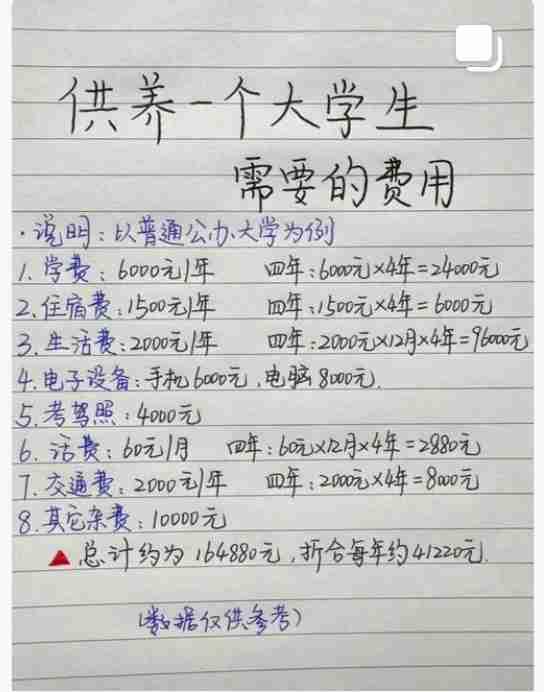 供养一个大学生
需要的费用
·说明：以普通公办大学为例
1.学费：6000元/年 四年：6000元×4年=24000元
2.住宿费：1500元/年 四年：1500元×4年=6000元
3.生活费：2000元/年 四年：2000元×12月×4年=96000元
4.电子设备：手机6000元，电脑8000元.
5.考驾照：4000元
6.话费：60元/月 四年：60元×12月×4年=2880元
7.交通费：2000元/年 四年：2000元×4年=8000元
8.其它杂费：10000元
▲总计约为164880元，折合每年约41220元.
（数据仅供参考）